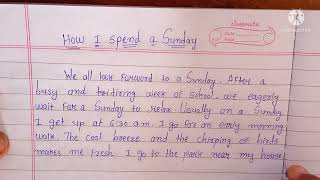 classmate
Date
Page
How I spend a Sunday
We all look forward to a Sunday. After a
busy and tritiring week of school. we eagerly
wait for a Sunday to relax Usually on a Sunday
I get up at 6:30 am. I go for an early morning
walk. The cool breeze and the chirping of birds
makes me fresh I go to the park near my house